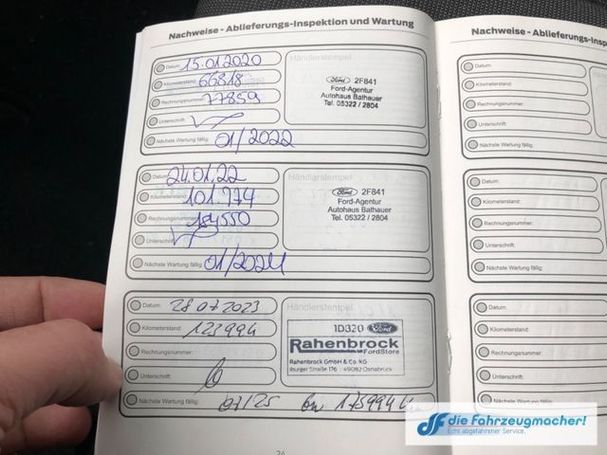 Nachweise - Ablieferungs-Inspektion und Wartung
Datum: 15.01.2020
Kilometerstand: 66818
Rechnungsnummer: 77859
Unterschrift:
Nächste Wartung fällig: 01/2022
Händlerstempel
Ford 2F841
Ford-Agentur
Autohaus Bathauer
Tel. 05322 / 2804
Datum: 24.01.22
Kilometerstand: 101.774
Rechnungsnummer: 550
Unterschrift:
Nächste Wartung fällig: 01/2024
Händlerstempel
Ford 2F841
Ford-Agentur
Autohaus Bathauer
Tel. 05322 / 2804
Datum: 28 07 2023
Kilometerstand: 123994
Rechnungsnummer:
Unterschrift:
Nächste Wartung fällig: 07/25 175994
Händlerstempel
1D320 Ford
Rahenbrock
FordStore
Rahenbrock GmbH & Co. KG
Iburger Straße 176 · 49082 Osnabrück
24
Nachweise - Ablieferungs-Insp
Datum:
Kilometerstand:
Rechnungsnummer:
Unterschrift:
Nächste Wartung fällig:
Datum:
Kilometerstand:
Rechnungsnummer:
Unterschrift:
Nächste Wartung fällig:
Datum:
Kilometerstand:
Rechnungsnummer:
Unterschrift:
Nächste Wartung fällig:
die Fahrzeugmacher!
Echt abgefahrener Service.